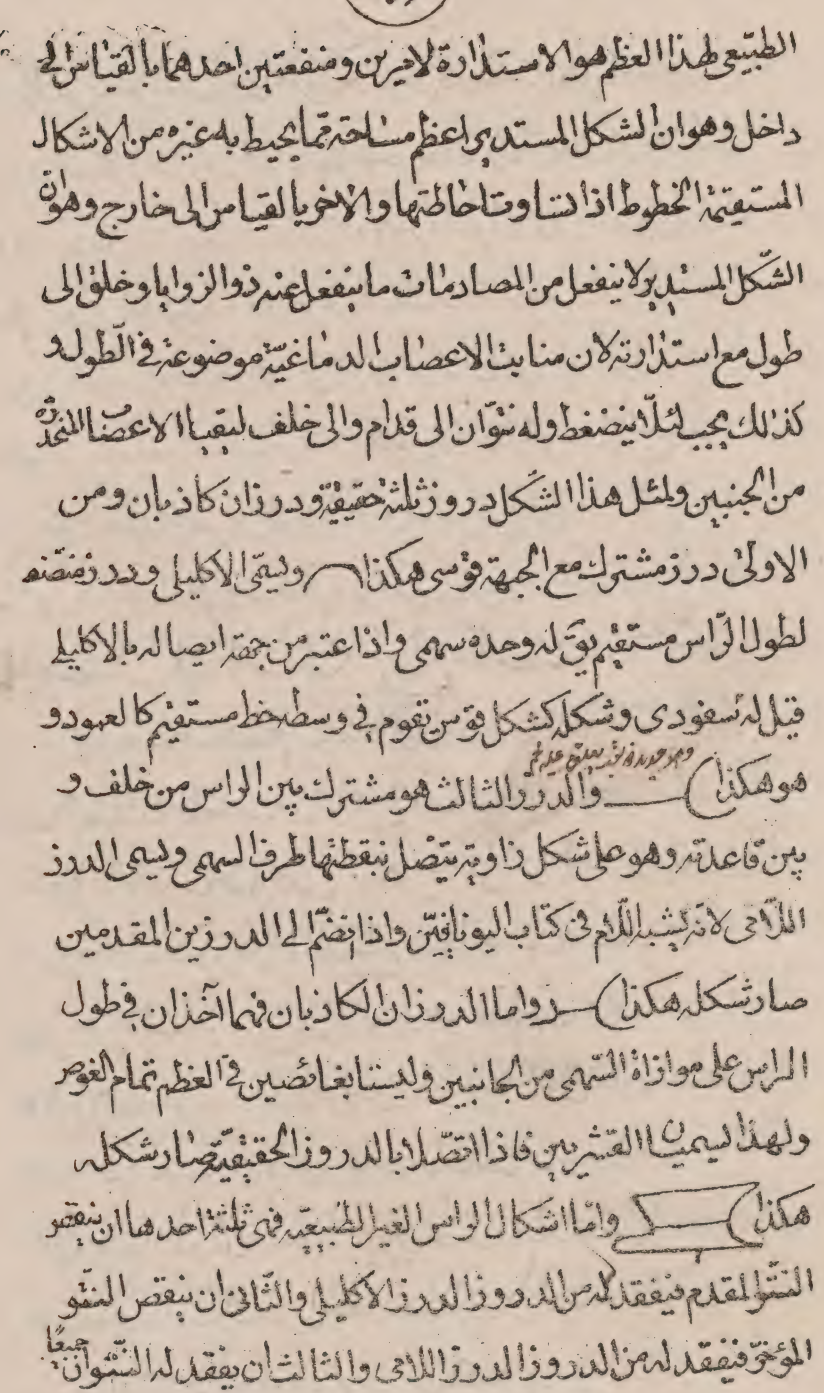 الطبيعى لهذا العظم هو الاستدارة لامرين ومنفعتين احدهما بالقياس الى
داخل وهو ان الشكل المستدير اعظم مساحة مما يحيط به غيره من الاشكال
المستقيمة الخطوط اذا تساوت احاطتها والاخر بالقياس الى خارج وهو ان
الشكل المستدير لا ينفعل من المصادمات ما ينفعل عنه ذو الزوايا وخلق الى
طول مع استدارته لان منابت الاعصاب الدماغية موضوعة فى الطول و
كذالك يجب لئلا ينضغط وله نتوان الى قدام والى خلف ليقيا الاعصاب المنحدرة
من الجنبين ولمثل هذا الشكل دروز ثلثة حقيقية ودرزان كاذبان ومن
الاولى درز مشترك مع الجبهة قوسى هكذا ويسمى الاكليلى ودرز منصف
لطول الراس مستقيم يق له وحده سهمى واذا اعتبر من جهة ايصاله بالاكليلى
قيل له سفودى وشكله كشكل قوس تقوم فى وسطه خط مستقيم كالعمود و
هو هكذا والدرز الثالث هو مشترك بين الراس من خلف و
بين قاعدته وهو على شكل زاوية يتصل بنقطتها طرف السهمى ويسمى الدرز
اللامى لانه يشبه اللام فى كتاب اليونانيين واذا انضم الى الدرزين المقدمين
صار شكله هكذا واما الدرزان الكاذبان فهما آخذان فى طول
الراس على موازاة السهمى من الجانبين وليستا بغائصين فى العظم تمام الغوص
ولهذا يسميان القشريين فاذا اتصلا بالدروز الحقيقية صار شكله
هكذا واما اشكال الراس الغير الطبيعية فهى ثلثة احدها ان ينقص
النتو المقدم فيفقد له من الدروز الدرز الاكليلى والثانى ان ينقص النتو
المؤخر فيفقد له من الدروز الدرز اللامى والثالث ان يفقد له النتوان جميعا